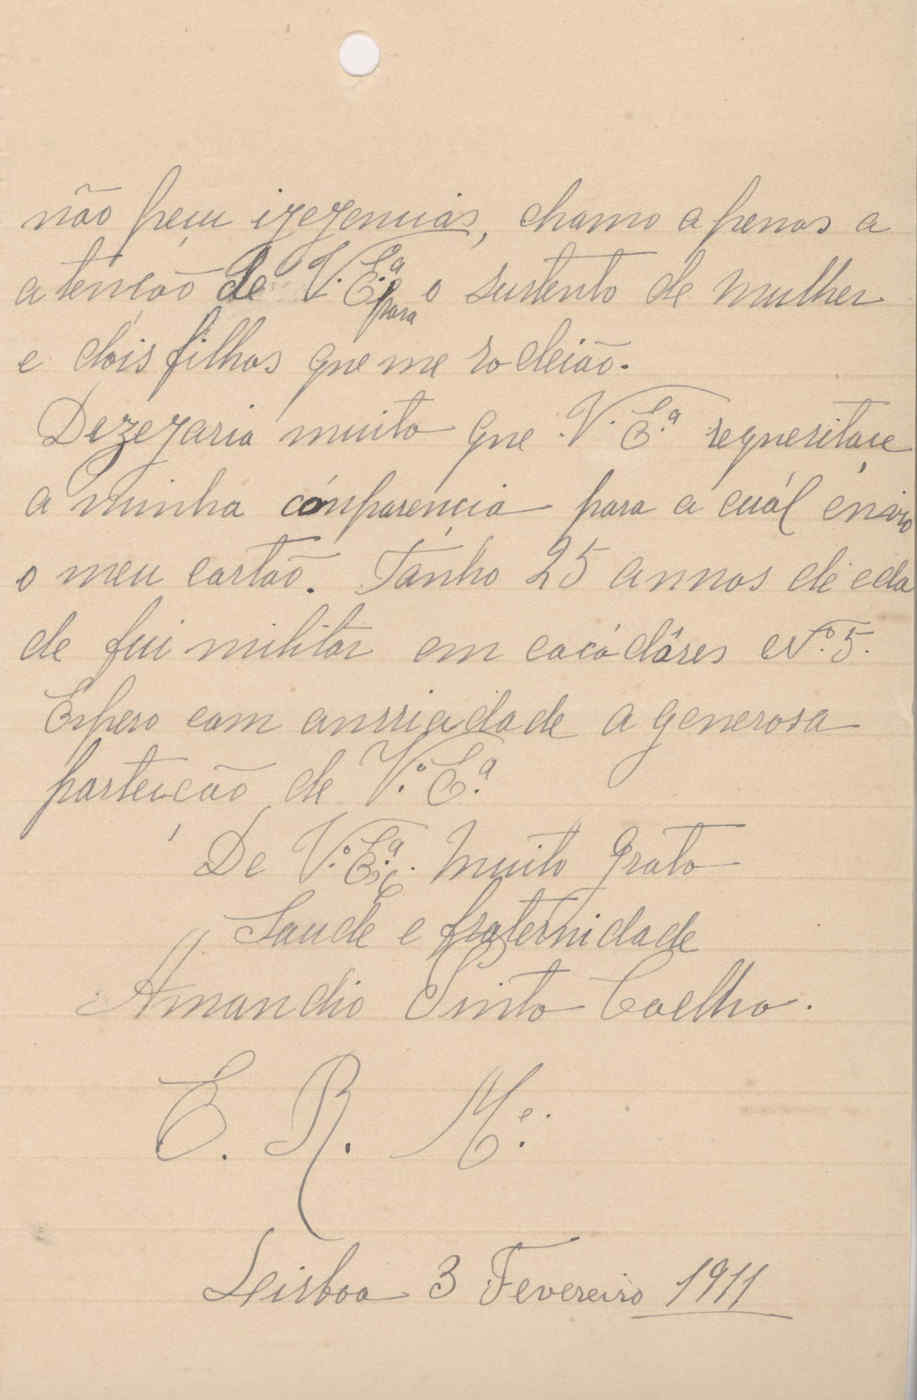 não peçu izezencias, chamo apenas a
atenção de V. E.ª para o sustento de mulher
e dois filhos que me rodeião.
Dezezaria muito que V. E.ª requesitáçe
a minha cómparencia para a cuál énvio
o meu cartão. Tánho 25 annos de eda
de fui militar em caçádôres Nº. 5.
Espero com anssiadade a generosa
parteição de V.º E.ª
De V.º E.ª muito grato
Saude e fraternidade
Amandio Pinto Coelho.
E. R. M.e
Lisboa 3 Fevereiro 1911